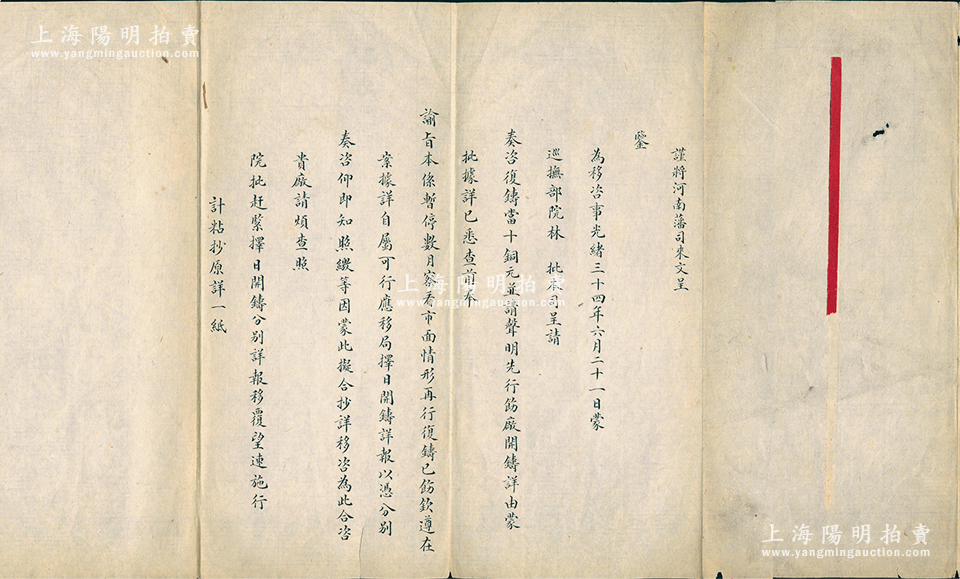 謹將河南藩司來文呈
鑒
為移咨事光緒三十四年六月二十一日蒙
巡撫部院林 批本司呈請
奏咨復鑄當十銅元並請聲明先行飭廠開鑄詳由蒙
批據詳已悉查前奉
諭旨本係暫停數月察看市面情形再行復鑄已飭欽遵在
案據詳自屬可行應移局擇日開鑄詳報以憑分別
奏咨仰即知照繳等因蒙此擬合抄詳移咨為此合咨
貴廠請煩查照
院批趕緊擇日開鑄分別詳報移覆望速施行
計粘抄原詳一紙
上海陽明拍賣
www.yangmingauction.com
上海陽明拍賣
www.yangmingauction.com
上海陽明拍賣
www.yangmingauction.com